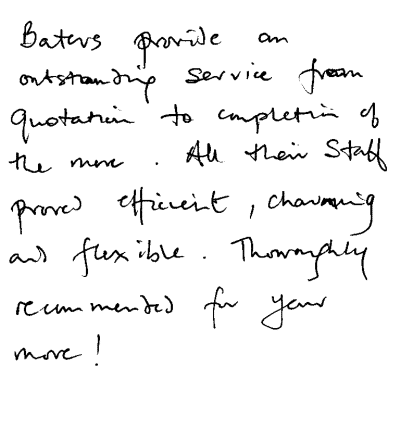 Baters provide an
outstanding service from
quotation to completion of
the move. All their staff
proved efficient, charming
and flexible. Thoroughly
recommended for your
move!